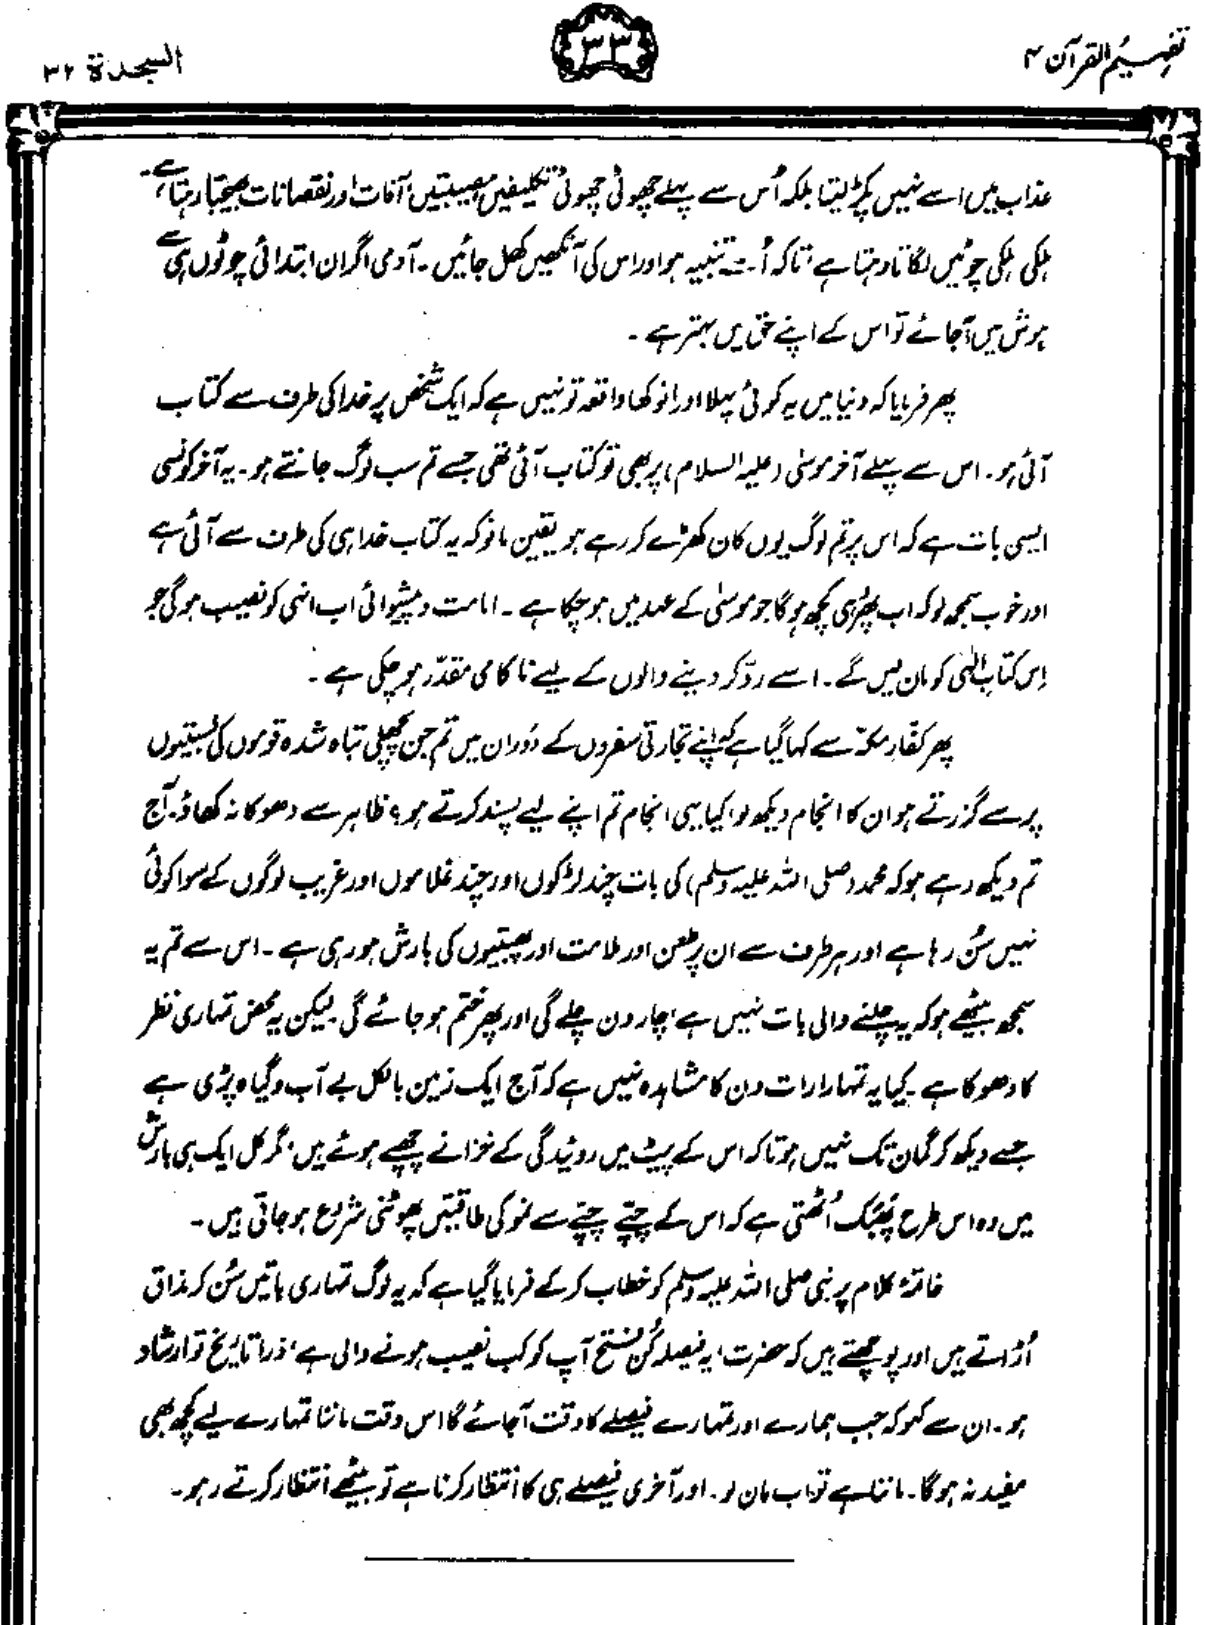 تفہیم القرآن ۴
۳۳
السجدة ۳۲
عذاب میں اسے نہیں پکڑ لیتا بلکہ اُس سے پہلے چھوٹی چھوٹی تکلیفیں، مصیبتیں، آفات اور نقصانات بھیجتا رہتا ہے،
ہلکی ہلکی چوٹیں لگاتا رہتا ہے، تاکہ اُسے تنبیہ ہو اور اس کی آنکھیں کھل جائیں ۔ آدمی اگر ان ابتدائی چوٹوں ہی سے
ہوش میں آجائے تو اس کے اپنے حق میں بہتر ہے ۔
پھر فرمایا کہ دنیا میں یہ کوئی پہلا اور انوکھا واقعہ تو نہیں ہے کہ ایک شخص پر خدا کی طرف سے کتاب
آئی ہو۔ اس سے پہلے آخر موسیٰ (علیہ السلام) پر بھی تو کتاب آئی تھی جسے تم سب لوگ جانتے ہو۔ یہ آخر کونسی
ایسی بات ہے کہ اس پر تم لوگ یوں کان کھڑے کر رہے ہو یقین مانو کہ یہ کتاب خدا ہی کی طرف سے آئی ہے
اور خوب سمجھ لو کہ اب پھر وہی کچھ ہوگا جو موسیٰ کے عہد میں ہو چکا ہے ۔ امامت و پیشوائی اب انہی کو نصیب ہوگی جو
اِس کتابِ الٰہی کو مان لیں گے ۔ اسے ردّ کر دینے والوں کے لیے ناکامی مقدّر ہو چکی ہے ۔
پھر کفّارِ مکہّ سے کہا گیا ہے کہ اپنے تجارتی سفروں کے دَوران میں تم جن پچھلی تباہ شدہ قوموں کی بستیوں
پر سے گزرتے ہو ان کا انجام دیکھ لو، کیا یہی انجام تم اپنے لیے پسند کرتے ہو؟ ظاہر سے دھوکا نہ کھاؤ۔ آج
تم دیکھ رہے ہو کہ محمد (صلی اللہ علیہ وسلم) کی بات چند لڑکوں اور چند غلاموں اور غریب لوگوں کے سوا کوئی
نہیں سُن رہا ہے اور ہر طرف سے ان پر طعن اور ملامت اور پھبتیوں کی بارش ہو رہی ہے ۔ اس سے تم یہ
سمجھ بیٹھے ہو کہ یہ چلنے والی بات نہیں ہے، چار دن چلے گی اور پھر ختم ہو جائے گی۔ لیکن یہ محض تمہاری نظر
کا دھوکا ہے ۔ کیا یہ تمہارا رات دن کا مشاہدہ نہیں ہے کہ آج ایک زمین بالکل بے آب و گیاہ پڑی ہے
جسے دیکھ کر گمان تک نہیں ہوتا کہ اس کے پیٹ میں روئیدگی کے خزانے چھپے ہوئے ہیں، مگر کل ایک ہی بارش
میں وہ اس طرح پَھبک اُٹھتی ہے کہ اس کے چپّے چپّے سے نمو کی طاقتیں پھوٹنی شروع ہو جاتی ہیں ۔
خاتمۂ کلام پر نبی صلی اللہ علیہ وسلم کو خطاب کر کے فرمایا گیا ہے کہ یہ لوگ تمہاری باتیں سُن کر مذاق
اُڑاتے ہیں اور پوچھتے ہیں کہ حضرت، یہ فیصلہ کُن فتح آپ کو کب نصیب ہونے والی ہے، ذرا تاریخ تو ارشاد
ہو ۔ ان سے کہو کہ جب ہمارے اور تمہارے فیصلے کا وقت آجائے گا اس وقت ماننا تمہارے لیے کچھ بھی
مفید نہ ہوگا ۔ ماننا ہے تو اب مان لو ۔ اور آخری فیصلے ہی کا انتظار کرنا ہے تو بیٹھے انتظار کرتے رہو ۔